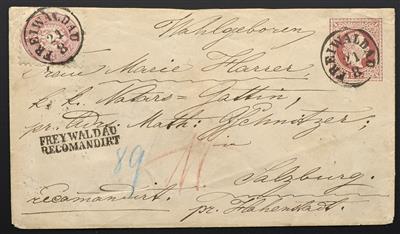 FREIWALDAU
24
8
FREIWALDAU
8
Wohlgeboren
Marie Harrer
k. k. Notars-Gattin,
pr. Adr. Math: Gschnitzer,
in
FREYWALDAU
RECOMANDIRT
89
Salzburg.
recomandirt.
pr. Hohenstadt.